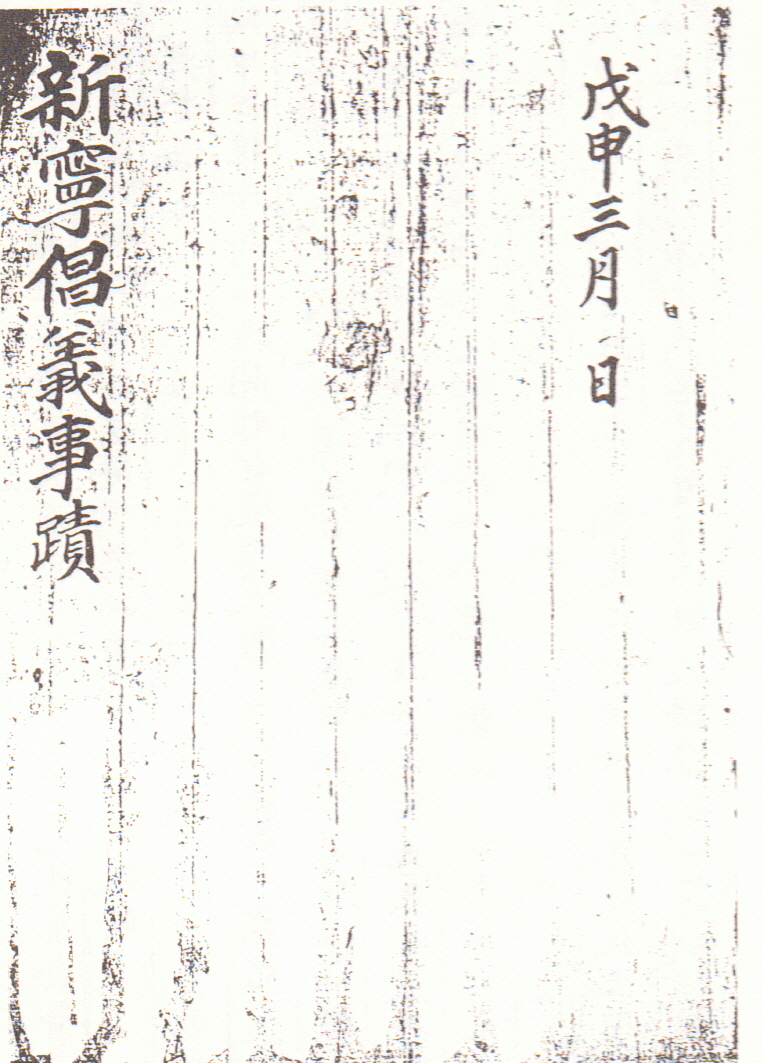 戊申三月 日
新寧倡義事蹟